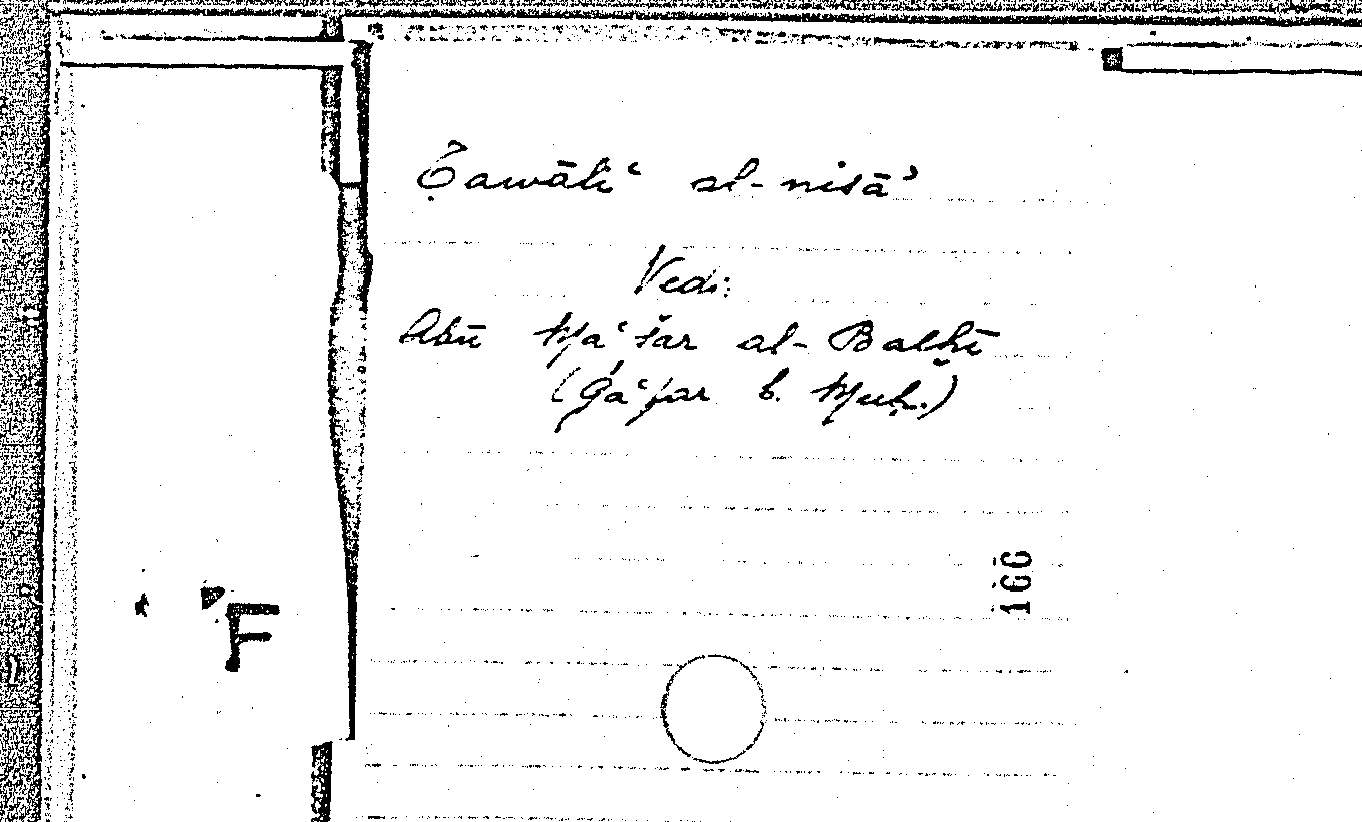 Ṭawāliʿ al-nisāʾ
Vedi:
Abū Maʿšar al-Balḫī
(Ǧaʿfar b. Muḥ.)
166
F